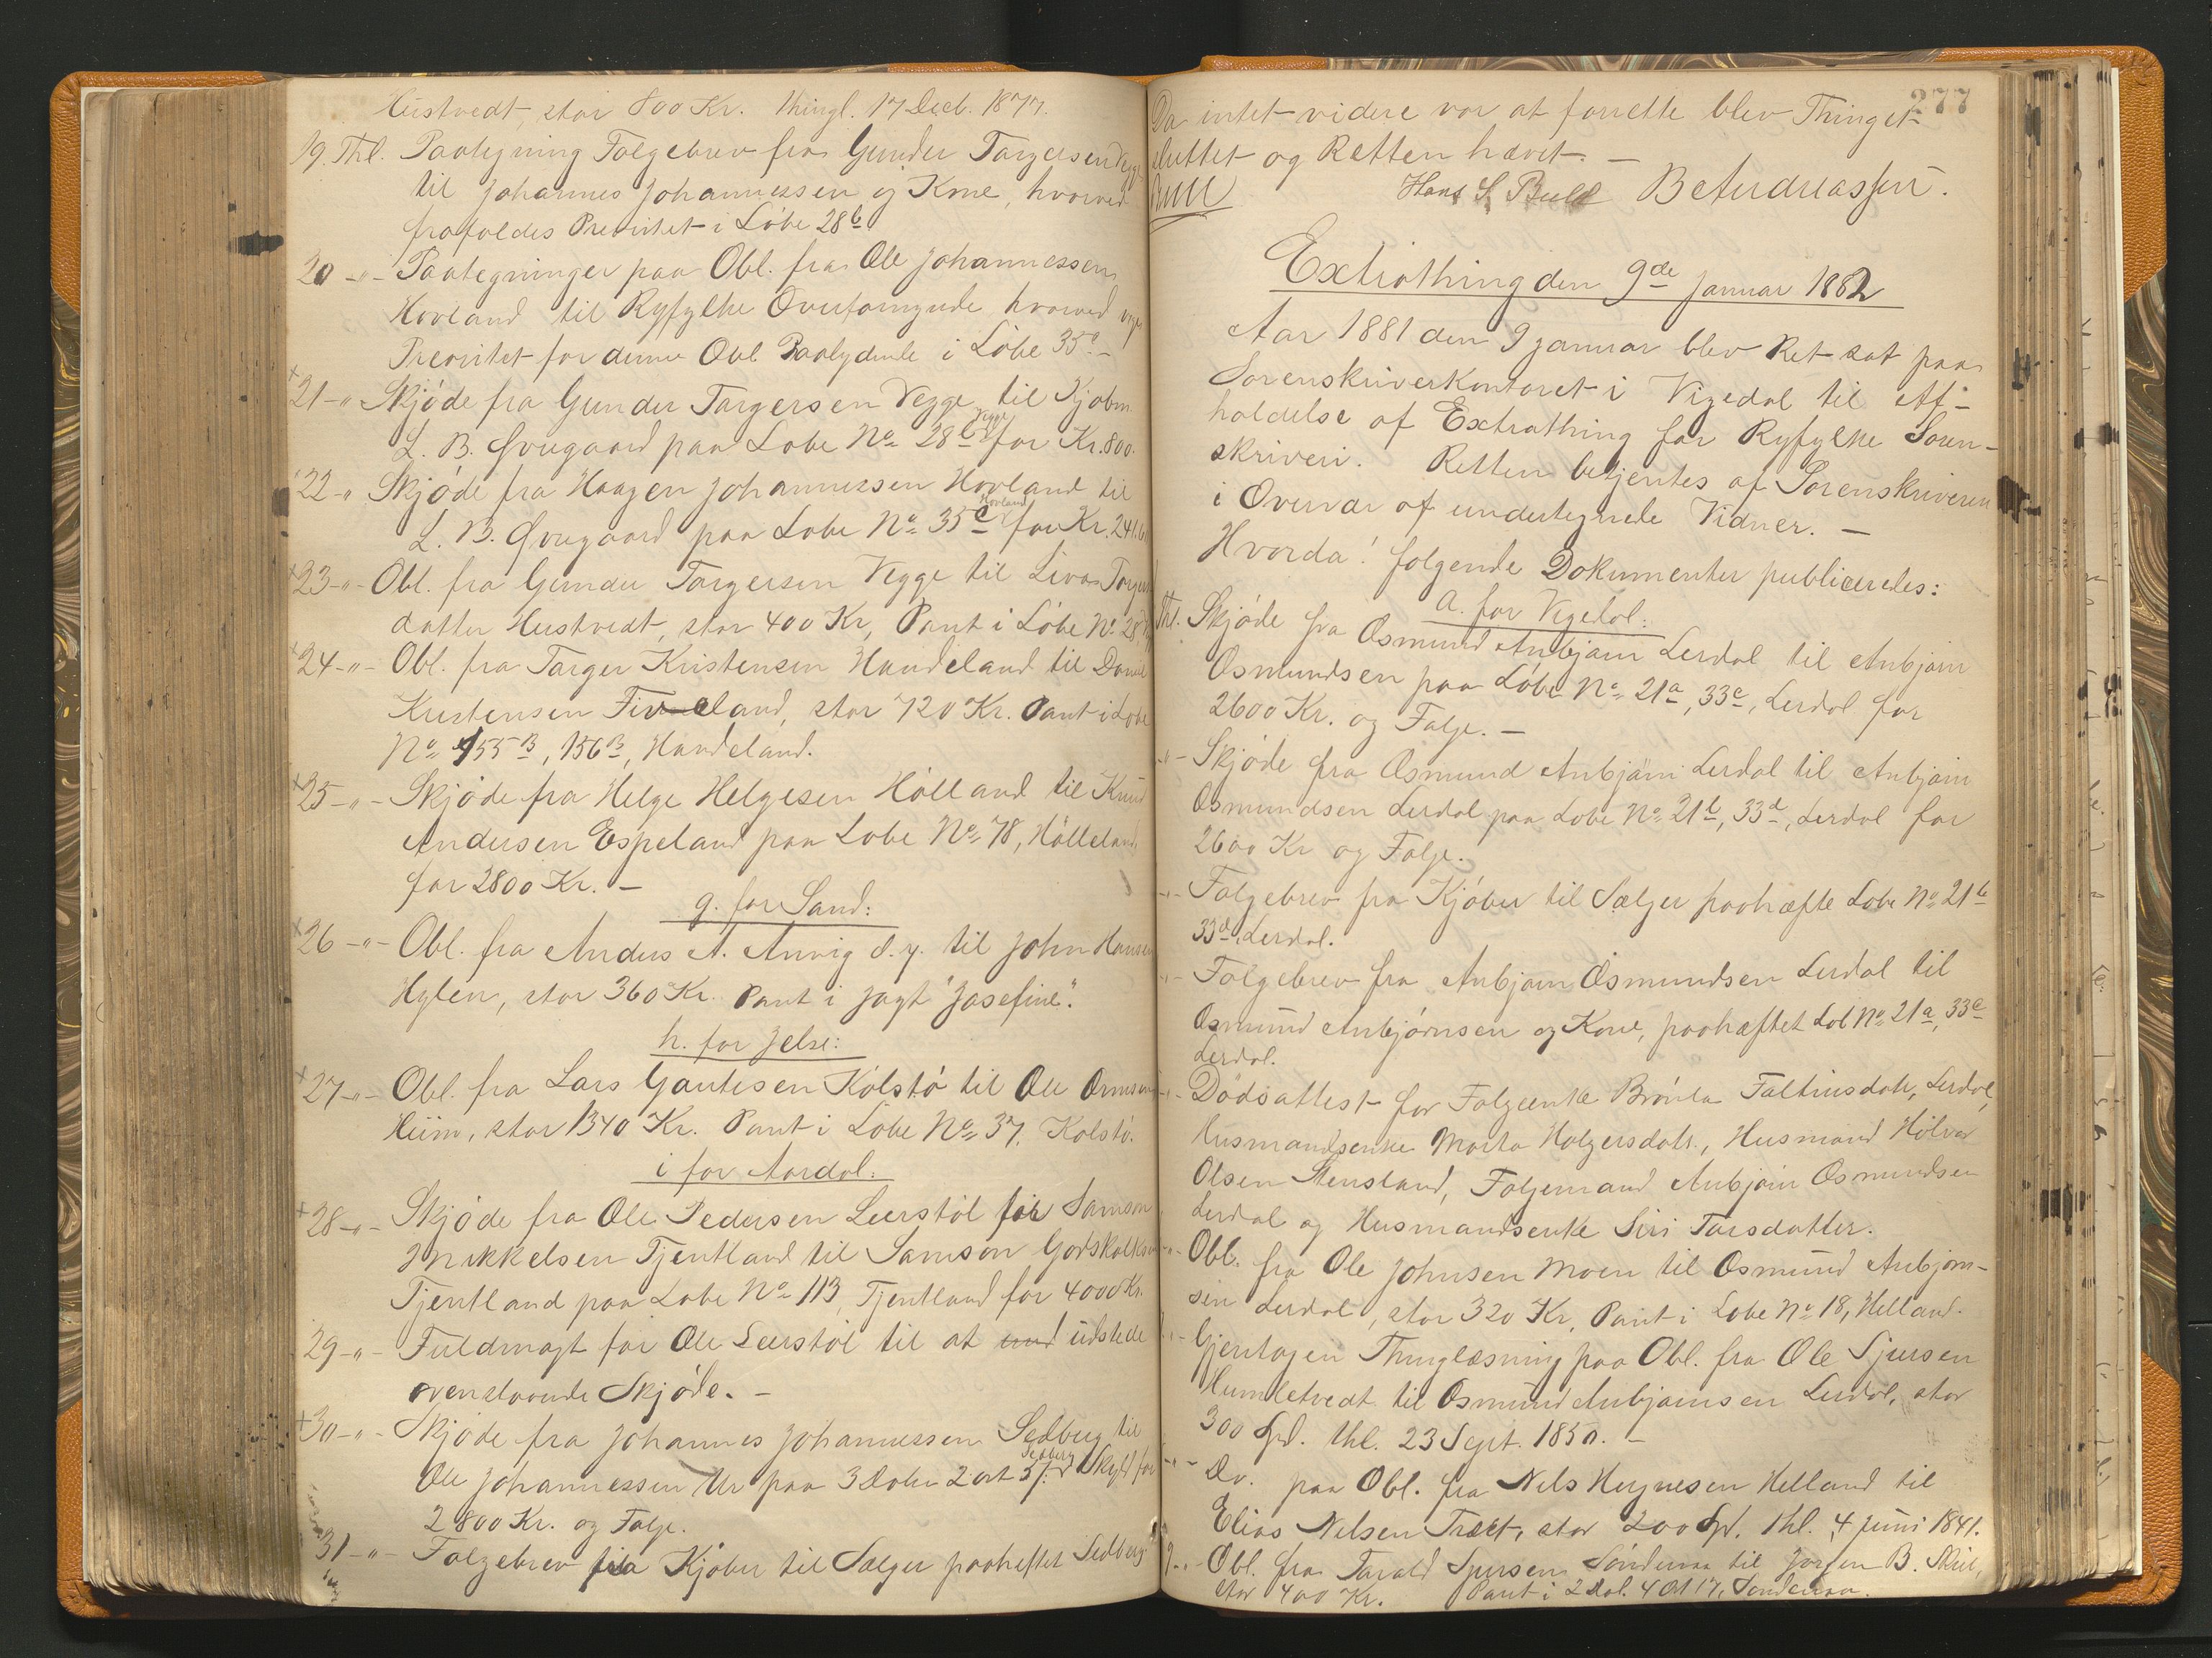 Hustvedt, stor 800 Kr. Thingl. 17 Decb. 1877.
19. Thl. Paategning Folgebrev fra Gunder Targersen Vegge
til Johannes Johannessen og Kone, hvorved
frafaldes Prioritet i Löbe 28b
20 -"- Paategninger paa Obl. fra Ole Johannessen
Hovland til Ryfylke Overformynde hvorved
Prioritet for denne Obl. Paalydende i Löbe 35c -
21 -"- Skjöde fra Gunder Targersen Vegge til Kjöbm.
L. B. Qvugaard paa Lobe No 28b Vegge for Kr. 800.
22 -"- Skjöde fra Haagen Johannessen Hovland til
L. B. Qvugaard paa Lobe No 35c Hovland for Kr. 241.
23 -"- Obl. fra Gunder Targersen Vegge til Liva
datter Hustvedt, stor 400 Kr, Pant i Löbe No 28
24 -"- Obl. fra Targer Kristensen Handeland til
Kristensen Fiveland, stor 720 Kr. Pant i Lobe
No 155B, 156B, Handeland.
25 -"- Skjöde fra Helge Helgesen Hölland til Knud
Andersen Espeland paa Lobe No 78, Hölleland
for 2800 Kr. -
g. for Sand:
26 -"- Obl. fra Anders A. Anvig d. y. til John Hansen
Hylen, stor 360 Kr. Pant i Jagt "Josefine".
h. for Jelse:
27 -"- Obl. fra Lars Gautesen Kölstö til Ole
Hiim, stor 1340 Kr. Pant i Löbe No 37, Kolstö.
i for Aardal.
28 -"- Skjöde fra Ole Pedersen Leerstöl för Samson
Mikkelsen Tjentland til Samson Godskalksen
Tjentland paa Lobe No 113, Tjentland for 4000 Kr.
29 -"- Fuldmagt for Ole Leerstöl til at und udstede
ovenstaaende Skjöde. -
30 -"- Skjöde fra Johannes Johannessen Sedberg til
Ole Johannessen Ur paa 3 Daler 2 ort 5 s. Sedberg Skyld for
2800 Kr. og Folge.
31 -"- Folgebrev fra Kjöber til Sælger paaheftet Sedberg
277
Da intet videre var at forrette blev Thinget
sluttet og Retten hævet. -
Bull Hans S. Buld B Andreassen.
Extrathing den 9de Januar 1882
Aar 1881 den 9 Januar blev Ret sat paa
Sorenskriverkontoret i Vigedal til Af-
holdelse af Extrathing for Ryfylke Soren-
skriveri. Retten betjentes af Sorenskriveren
i Overvær af undertegnede Vidner. -
Hvorda! folgende Dokumenter publiceredes:
a. for Vigedal:
Thl. Skjöde fra Osmund Anbjørn Lerdal til Anbjørn
Osmundsen paa Löbe No 21a, 33c, Lerdal for
2600 Kr. og Folge. -
-"- Skjöde fra Osmund Anbjørn Lerdal til Anbjørn
Osmundsen Lerdal paa Lobe No 21b, 33d, Lerdal for
2600 Kr og Folge.
-"- Folgebrev fra Kjöber til Sælger paahæfte Lobe No 21b
33d, Lerdal.
-"- Folgebrev fra Anbjørn Osmundsen Lerdal til
Osmund Anbjörnsen og Kone, paahæftet Lob No 21a, 33c
Lerdal.
-"- Dödsattest for Folgeenke Faltinsdatt., Lerdal,
Husmandsenke Marta Holgersdatt., Husmand
Olsen Stensland, Folgemand Anbjørn Osmundsen
Lerdal og Husmandsenke Siri Tarsdatter.
-"- Obl. fra Ole Johnsen Moen til Osmund Anbjørn-
sen Lerdal, stor 320 Kr, Pant i Lobe No 18, Helland.
-"- Gjentagen Thinglæsning paa Obl. fra Ole Sjursen
Humletvedt til Osmund Anbjørnsen Lerdal, stor
300 Spd. thl. 23 Sept. 1850. -
-"- Do. paa Obl. fra Nils Helland til
Elias Nilsen Træet, stor 200 Spd. thl. 4 Juni 1841.
-"- Obl. fra Sönderaa til B.
stor 400 Kr. Pant i 2 Dal. 4 Ort 17, Sonderaa.